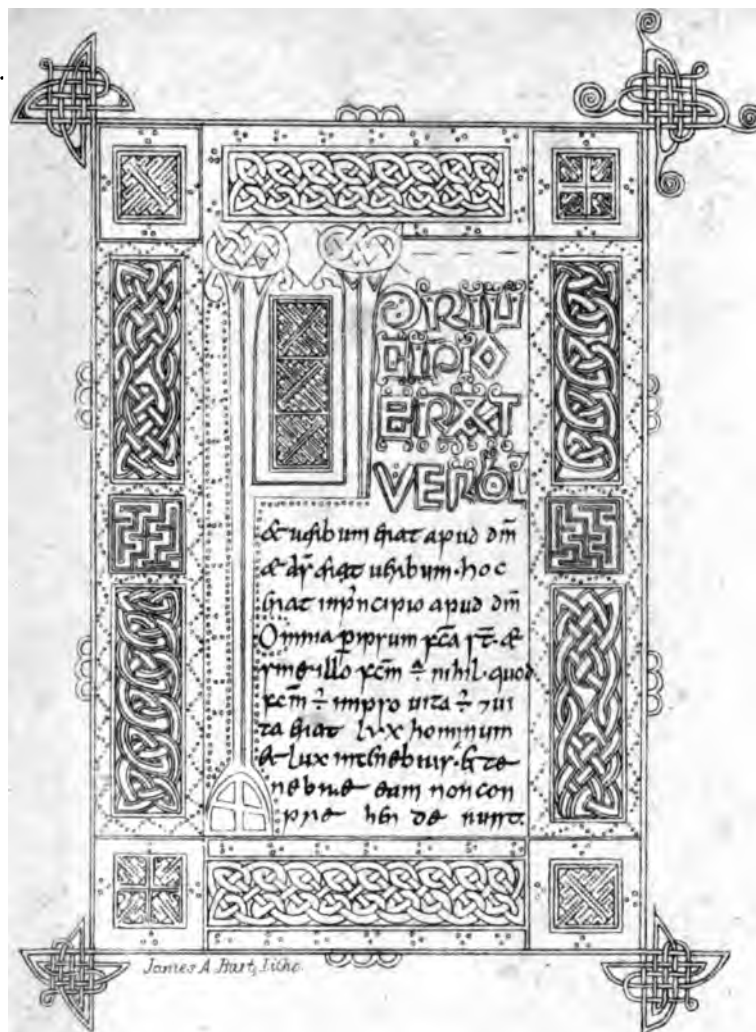 IN PRIN
CIPIO
ERAT
& uerbum erat apud dm̄
& ds̄ erat uerbum· hoc
erat inprincipio apud dm̄
Omnia ꝑipsum fc̄a st̄· &
sineillo fcm̄ ÷ nihil· quod
fcm̄ ÷ inipso uita ÷ ⁊ui
ta erat lux hominum
& lux intenebris· & te
nebre eam non con
pre hen de runt.
James A. Burt, Litho.